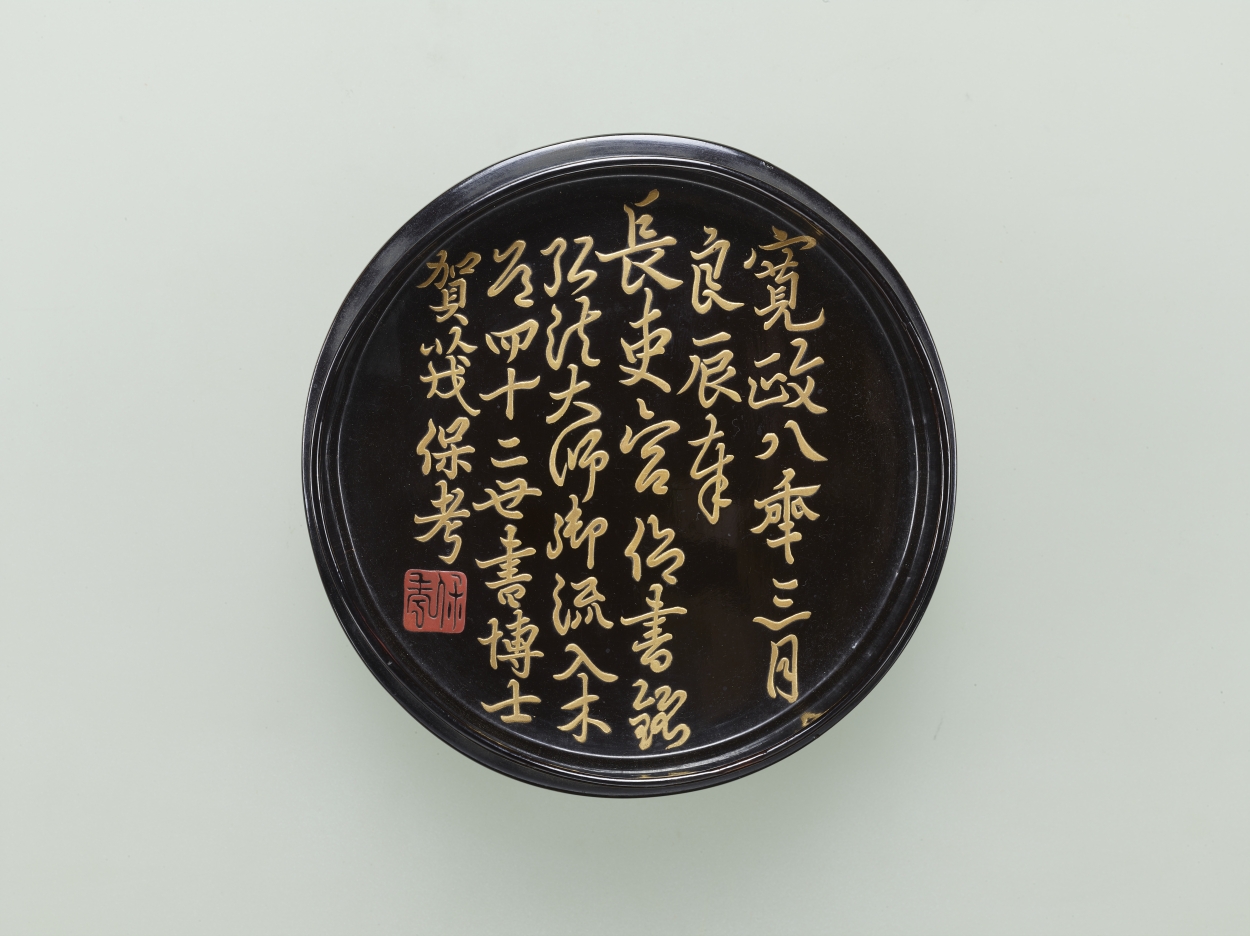 寛政八年三月
良辰奉
長吏宮命書銘
弘法大師御流入木
道四十二世書博士
賀茂保考
保考